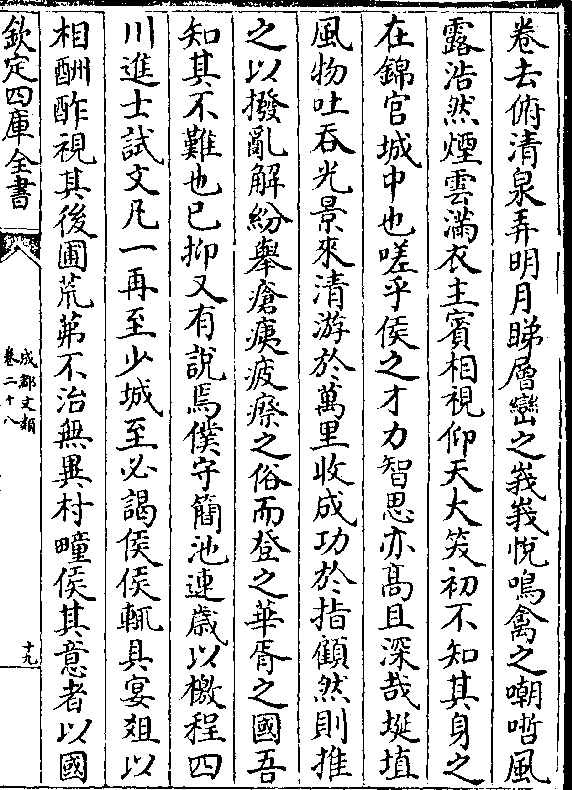 卷去俯清泉弄明月睇層巒之峩峩悅鳴禽之嘲哳風
露浩然煙雲滿衣主賓相視仰天大笑初不知其身之
在錦官城中也嗟乎侯之才力智思亦髙且深哉埏埴
風物吐吞光景來清游於萬里收成功於指顧然則推
之以撥亂解紛舉瘡痍疲瘵之俗而登之華胥之國吾
知其不難也已抑又有說焉僕守簡池連歲以檄程四
川進士試文凡一再至少城至必謁侯侯輒具宴爼以
相酬酢視其後圃荒茀不治無異村疃侯其意者以國
欽定四庫全書
成都文類
卷二十八
十九